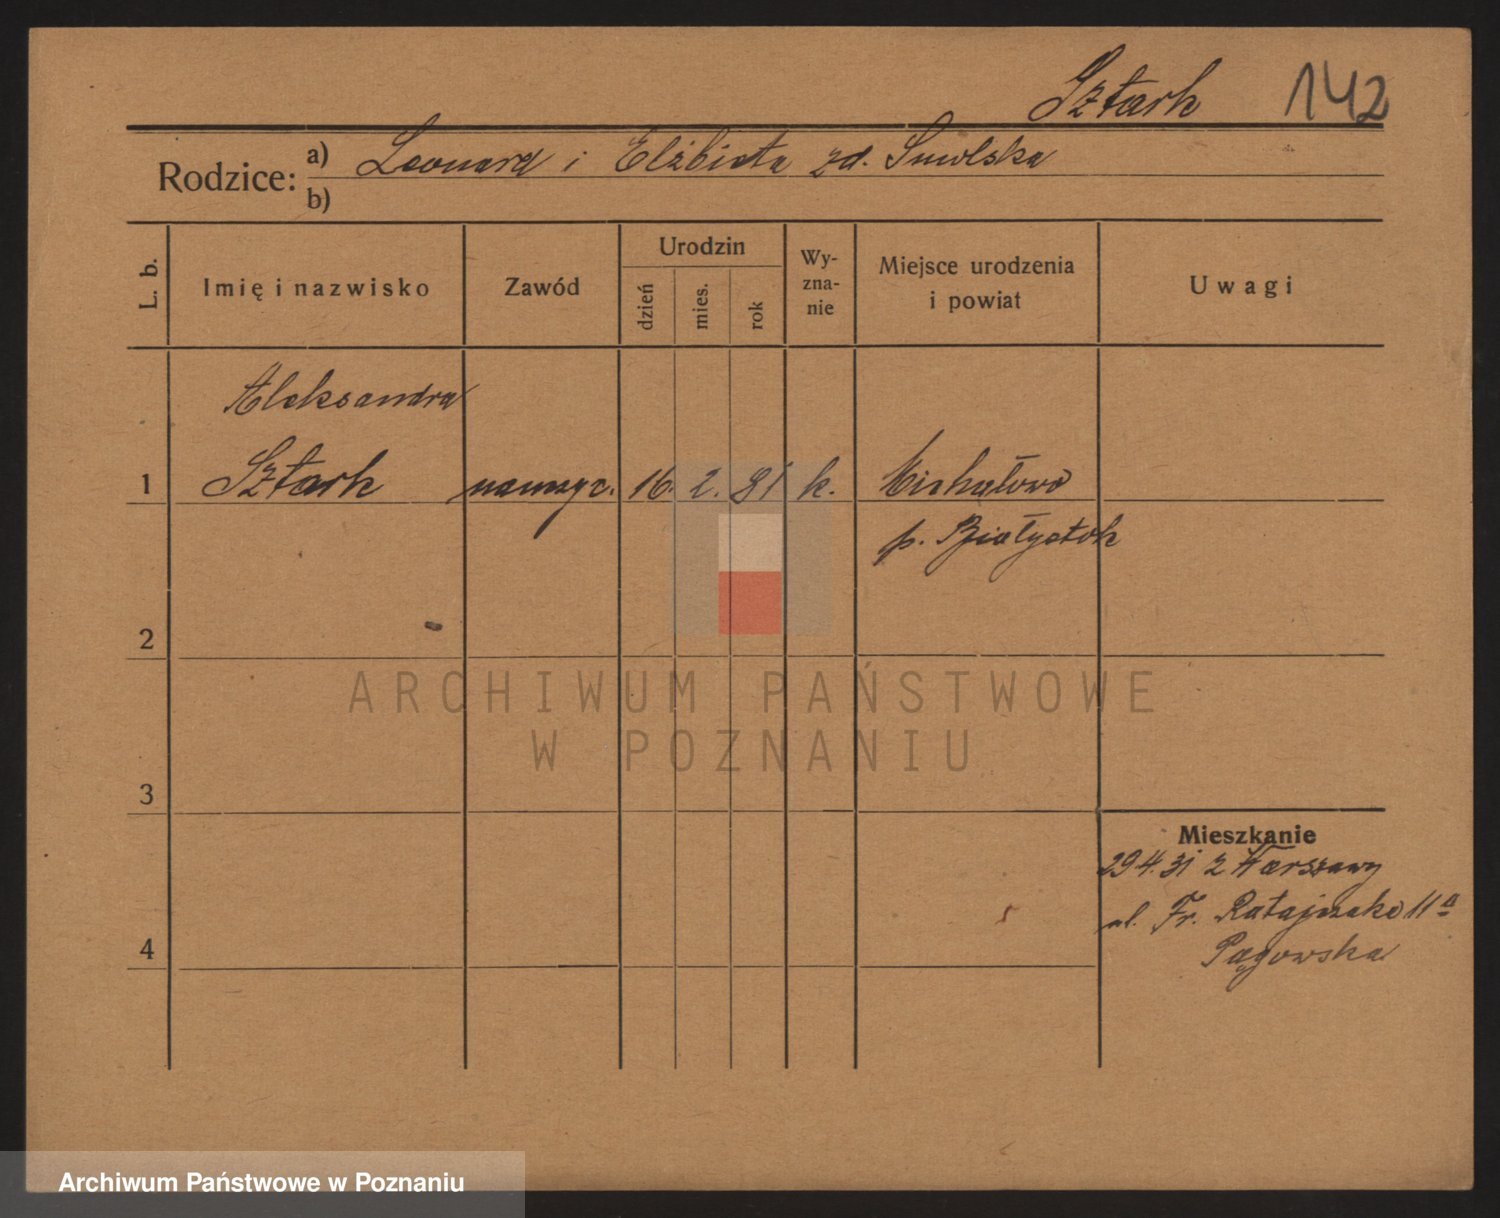 Sztark 142
Rodzice: a) Leonard i Elżbieta zd. Smolska
b)
L. b.
Imię i nazwisko
Zawód
Urodzin
dzień
mies.
rok
Wy-
zna-
nie
Miejsce urodzenia
i powiat
Uwagi
Aleksandra
1 Sztark nauczyc. 16. 2. 81 k. Michałowo
p. Białystok
2
3
4
ARCHIWUM PAŃSTWOWE
W POZNANIU
Mieszkanie
29.4.31 z Warszawy
ul. Fr. Ratajczaka 11a
Pągowska
Archiwum Państwowe w Poznaniu